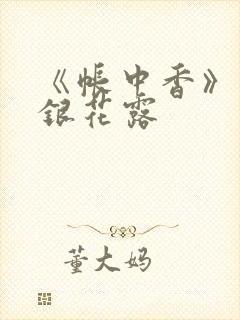 《帐中香》
银花露
董大妈